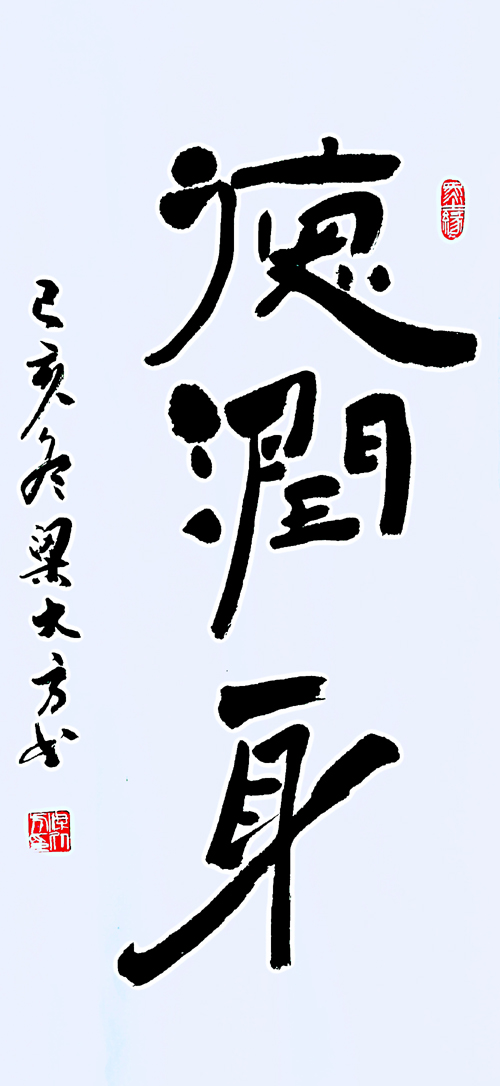 德潤身
己亥冬梁大方书